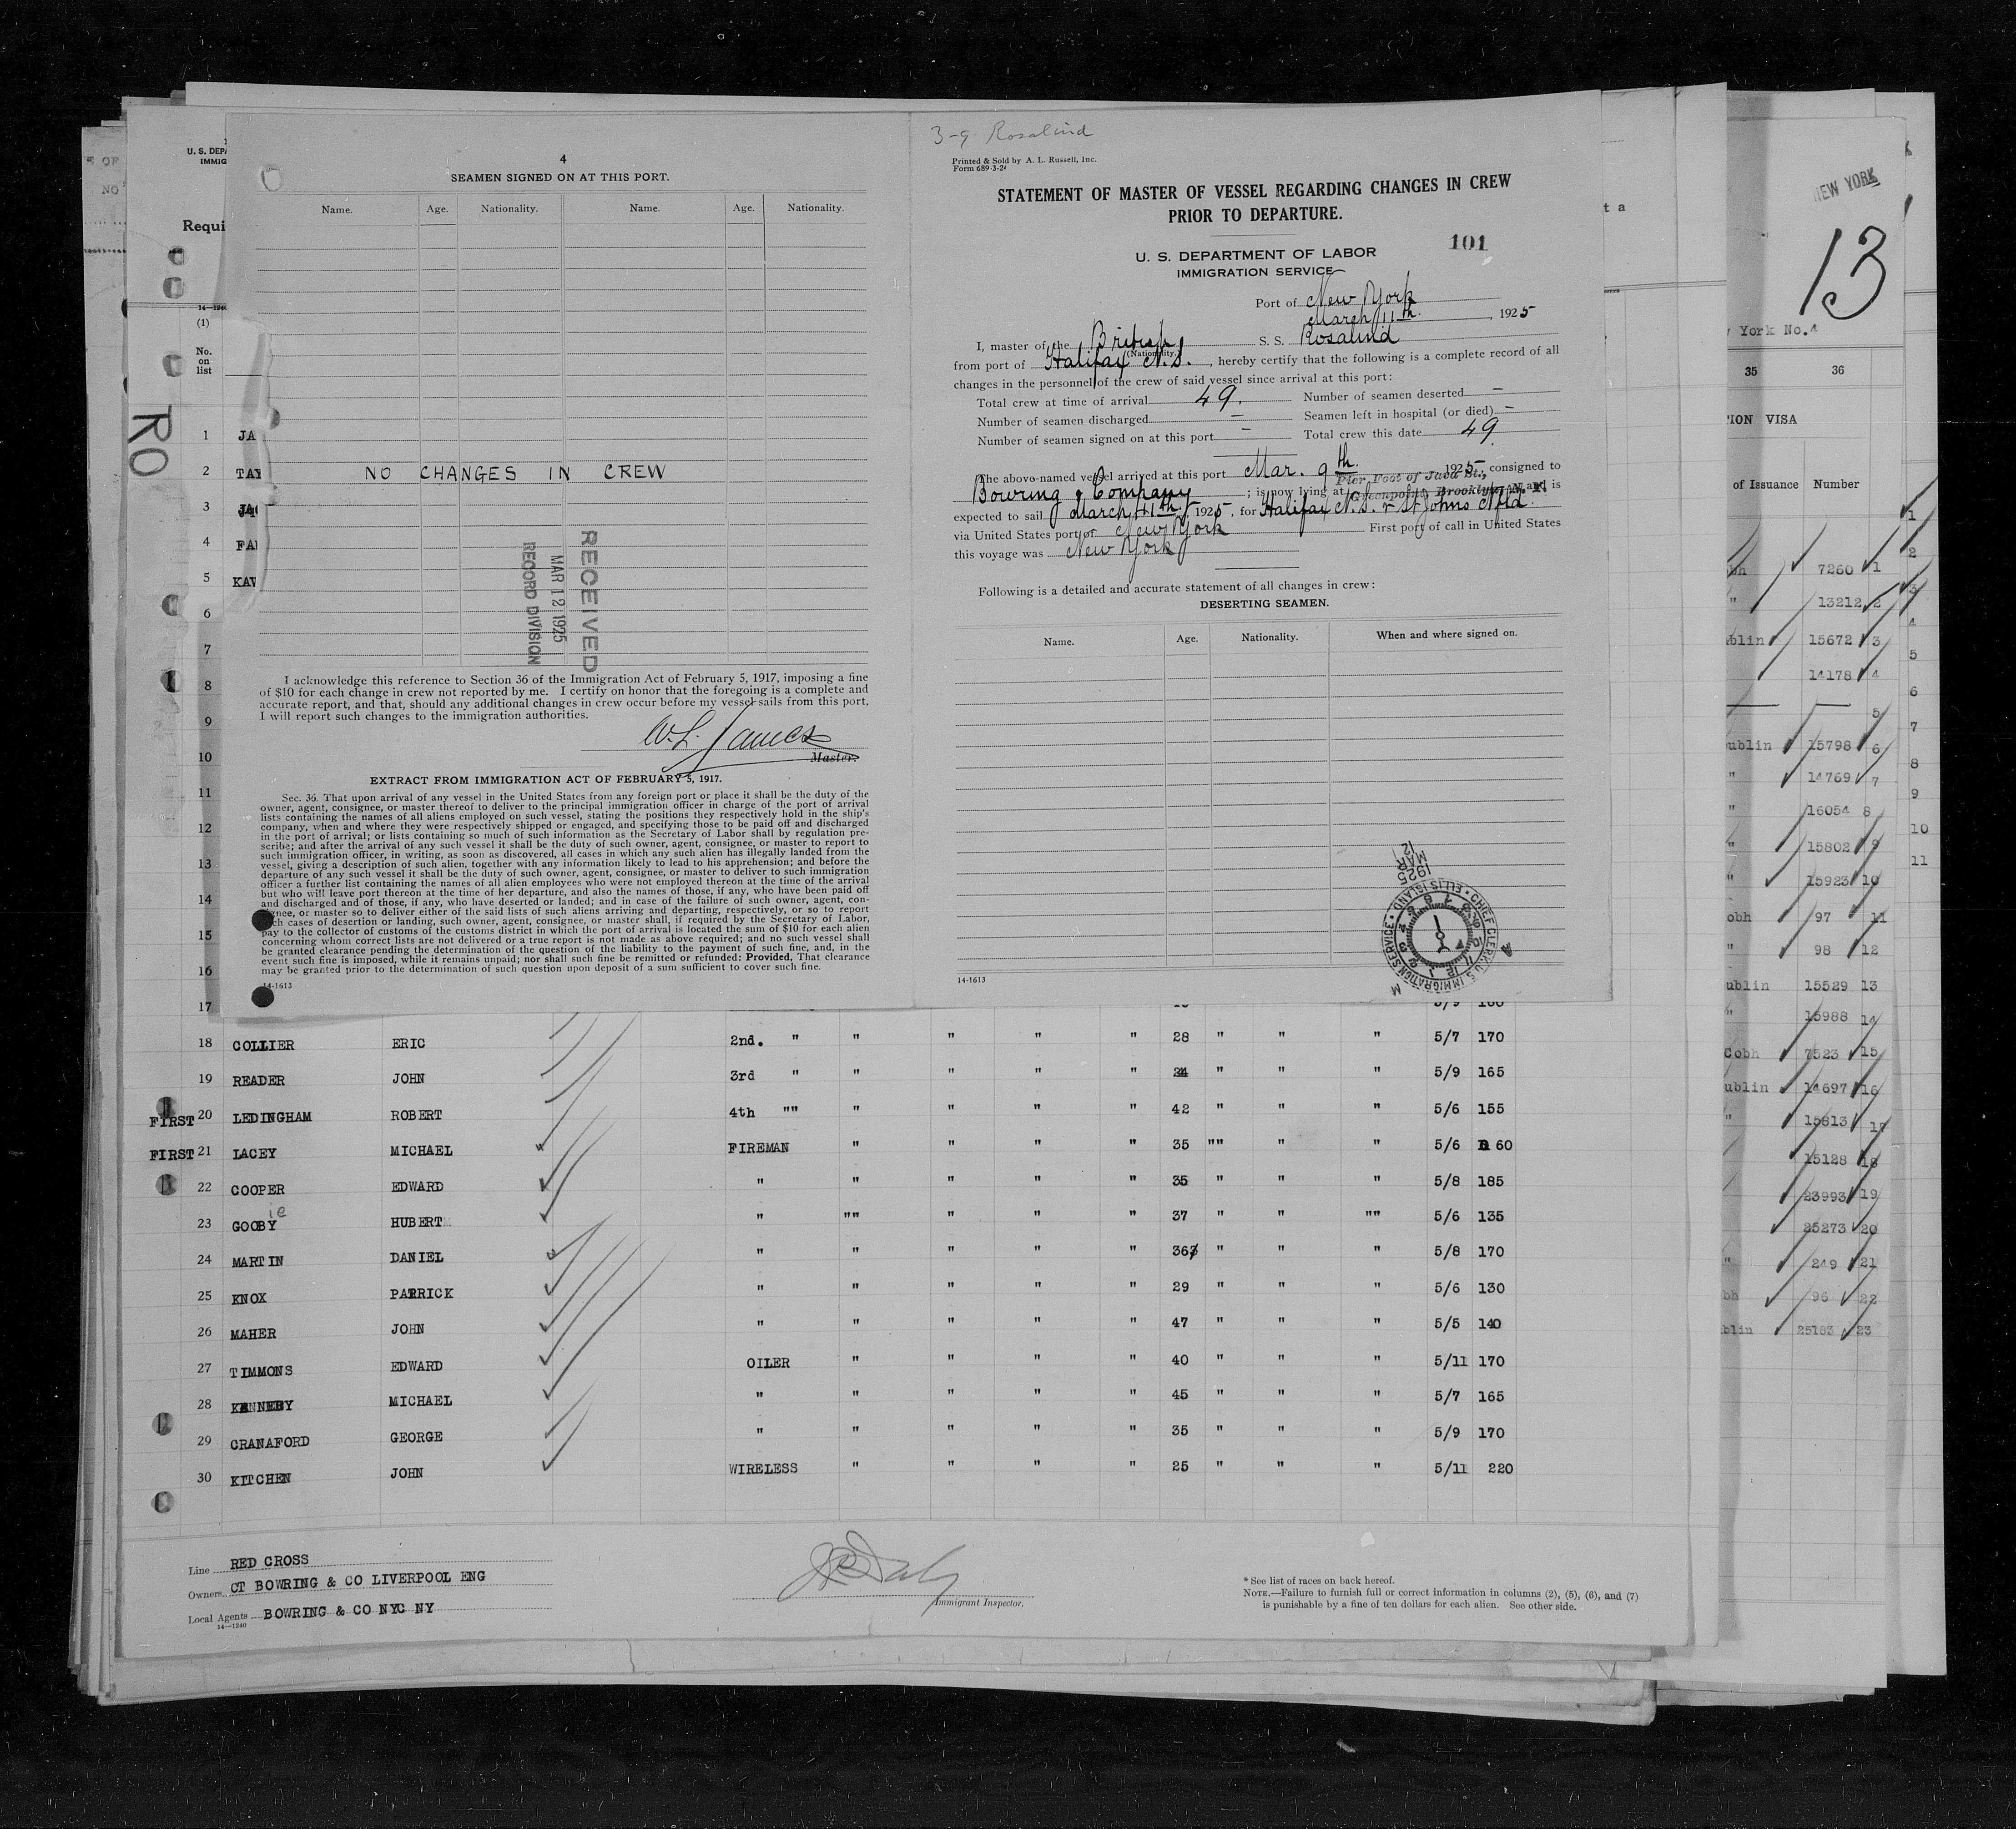 3-9 Rosalind
4
SEAMEN SIGNED ON AT THIS PORT.
Name. Age. Nationality. Name. Age. Nationality.
NO CHANGES IN CREW
RECEIVED
MAR 12 1925
RECORD DIVISION
I acknowledge this reference to Section 36 of the Immigration Act of February 5, 1917, imposing a fine
of $10 for each change in crew not reported by me. I certify on honor that the foregoing is a complete and
accurate report, and that, should any additional changes in crew occur before my vessel sails from this port,
I will report such changes to the immigration authorities.
W.L. James
Master.
EXTRACT FROM IMMIGRATION ACT OF FEBRUARY 5, 1917.
Sec. 36. That upon arrival of any vessel in the United States from any foreign port or place it shall be the duty of the
owner, agent, consignee, or master thereof to deliver to the principal immigration officer in charge of the port of arrival
lists containing the names of all aliens employed on such vessel, stating the positions they respectively hold in the ship's
company, when and where they were respectively shipped or engaged, and specifying those to be paid off and discharged
in the port of arrival; or lists containing so much of such information as the Secretary of Labor shall by regulation pre-
scribe; and after the arrival of any such vessel it shall be the duty of such owner, agent, consignee, or master to report to
such immigration officer, in writing, as soon as discovered, all cases in which any such alien has illegally landed from the
vessel, giving a description of such alien, together with any information likely to lead to his apprehension; and before the
departure of any such vessel it shall be the duty of such owner, agent, consignee, or master to deliver to such immigration
officer a further list containing the names of all alien employees who were not employed thereon at the time of the arrival
but who will leave port thereon at the time of her departure, and also the names of those, if any, who have been paid off
and discharged and of those, if any, who have deserted or landed; and in case of the failure of such owner, agent, con-
signee, or master so to deliver either of the said lists of such aliens arriving and departing, respectively, or so to report
such cases of desertion or landing, such owner, agent, consignee, or master shall, if required by the Secretary of Labor,
pay to the collector of customs of the customs district in which the port of arrival is located the sum of $10 for each alien
concerning whom correct lists are not delivered or a true report is not made as above required; and no such vessel shall
be granted clearance pending the determination of the question of the liability to the payment of such fine, and, in the
event such fine is imposed, while it remains unpaid; nor shall such fine be remitted or refunded: Provided, That clearance
may be granted prior to the determination of such question upon deposit of a sum sufficient to cover such fine.
14-1613
Printed & Sold by A. L. Russell, Inc.
Form 689-3-24
STATEMENT OF MASTER OF VESSEL REGARDING CHANGES IN CREW
PRIOR TO DEPARTURE.
101
U. S. DEPARTMENT OF LABOR
IMMIGRATION SERVICE
Port of New York
March 11th, 1925
I, master of the British S. S. Rosalind
(Nationality.)
from port of Halifax N.S., hereby certify that the following is a complete record of all
changes in the personnel of the crew of said vessel since arrival at this port:
Total crew at time of arrival 49. Number of seamen deserted —
Number of seamen discharged — Seamen left in hospital (or died) —
Number of seamen signed on at this port — Total crew this date 49
The above-named vessel arrived at this port Mar. 9th 1925, consigned to
Pier, Foot of Java St.,
Bowring & Company; is now lying at Greenpoint, Brooklyn, N. Y. and is
expected to sail March 11th, 1925, for Halifax N.S. & St Johns Nfld.
via United States port of New York First port of call in United States
this voyage was New York
Following is a detailed and accurate statement of all changes in crew:
DESERTING SEAMEN.
Name. Age. Nationality. When and where signed on.
1925
MAR
12
CHIEF CLERK, U S IMMIGRATION SERVICE ELLIS ISLAND
14-1613
U. S. DEP
IMMIG
Requi
14—1240
(1)
No.
on
list
RO
1 JA
2 TAY
3
4
5 KAV
6
7
8
9
10
11
12
13
14
15
16
17 5/9 160
18 COLLIER ERIC 2nd. " " " " " 28 " " " 5/7 170
19 READER JOHN 3rd " " " " " 34 " " " 5/9 165
FIRST 20 LEDINGHAM ROBERT 4th "" " " " " 42 " " " 5/6 155
FIRST 21 LACEY MICHAEL FIREMAN " " " " 35 "" " " 5/6 60
22 COOPER EDWARD " " " " " 35 " " " 5/8 185
23 GOOBY ie HUBERT " "" " " " 37 " " "" 5/6 135
24 MARTIN DANIEL " " " " " 36 " " " 5/8 170
25 KNOX PATRICK " " " " " 29 " " " 5/6 130
26 MAHER JOHN " " " " " 47 " " " 5/5 140
27 TIMMONS EDWARD OILER " " " " 40 " " " 5/11 170
28 MICHAEL " " " " " 45 " " " 5/7 165
29 CRANAFORD GEORGE " " " " " 35 " " " 5/9 170
30 KITCHEN JOHN WIRELESS " " " " 25 " " " 5/11 220
Line RED CROSS
Owners CT BOWRING & CO LIVERPOOL ENG
Local Agents BOWRING & CO NYC NY
14—1240
Immigrant Inspector.
* See list of races on back hereof.
NOTE.—Failure to furnish full or correct information in columns (2), (5), (6), and (7)
is punishable by a fine of ten dollars for each alien. See other side.
NEW YORK
13
York No.4
35 36
TION VISA
of Issuance Number
bh 7260 1
" 13212 2
blin 15672 3
14178 4
5
ublin 15798 6
" 14769 7
" 16054 8
" 15802 9
" 15923 10
obh 97 11
" 98 12
ublin 15529 13
" 15988 14
Cobh 7523 15
ublin 14697 16
" 15813 17
15128 18
23993 19
25273 20
" 249 21
bh 96 22
blin 25183 23
1
2
3
4
5
6
7
8
9
10
11